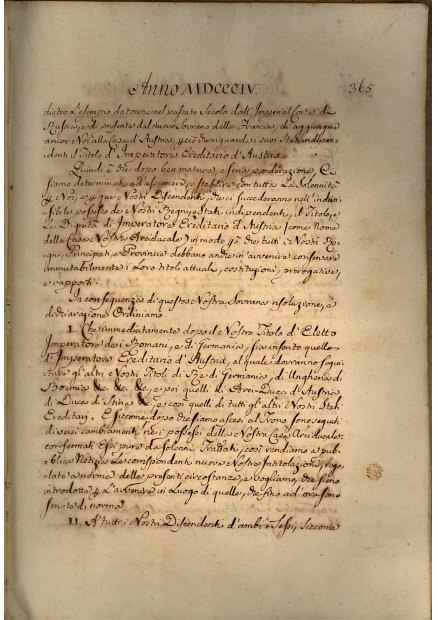 Anno MDCCCIV. 365
dietro l'esempio datocene nel passato Secolo dall'Imperial Corte di
Russia, e di presente dal nuovo Sovrano della Francia, di aggiugnere
ancor Noi alla Casa d'Austria, e ciò in riguardo a' suoi Stati indipen-
denti il Titolo d'Imperatore Ereditario d'Austria.
Quindi è che dopo ben matura, e seria ponderazione, Ci
siamo determinati ed assumere, e stabilire con tutta la Solennità
Noi, e que' Nostri Discendenti, che ci succederanno nell'indivi-
sibile possesso de' Nostri Regni, e Stati indipendenti, il Titolo, e
La Dignità di Imperatore Ereditario d'Austria (come Nome
della Casa Nostra Arciducale) in modo che tutti i Nostri Re-
gni, Principati, e Provincie debbano anche in avvenire conservare
immutabilmente i Loro titoli attuali, costituzioni, prerogative,
e rapporti.
In conseguenza di questa Nostra Sovrana risoluzione, e
dichiarazione Ordiniamo.
I. Che immediatamente dopo il Nostro Titolo d'Eletto
Imperatore dei Romani, e di Germania, sia inserto quello
d'Imperatore Ereditario d'Austria, al quale dovranno segui-
tare gli altri Nostri Titoli di Re di Germania, di Ungheria, di
Boemia &c. &c. &c. e poi quelli d'Arci-Duca d'Austria
di Duca di Stiria &c. e così quelli di tutti gli altri Nostri Stati
Ereditari. E siccome dopo che siamo ascesi al Trono sono segui-
ti diversi cambiamenti nei possessi della Nostra Casa Arciducale
confermati Essi pure da solenni Trattati, così rendiamo a pub-
blica Notizia le corrispondenti nuove Nostre Intitolazioni, rego-
late a norma delle presenti circostanze, e vogliamo, che siano
introdotte per l'avvenire in Luogo di quelle, che fino ad ora sono
servite di norma.
II. A tutti i Nostri Discendenti d'ambi i Sessi, siccome